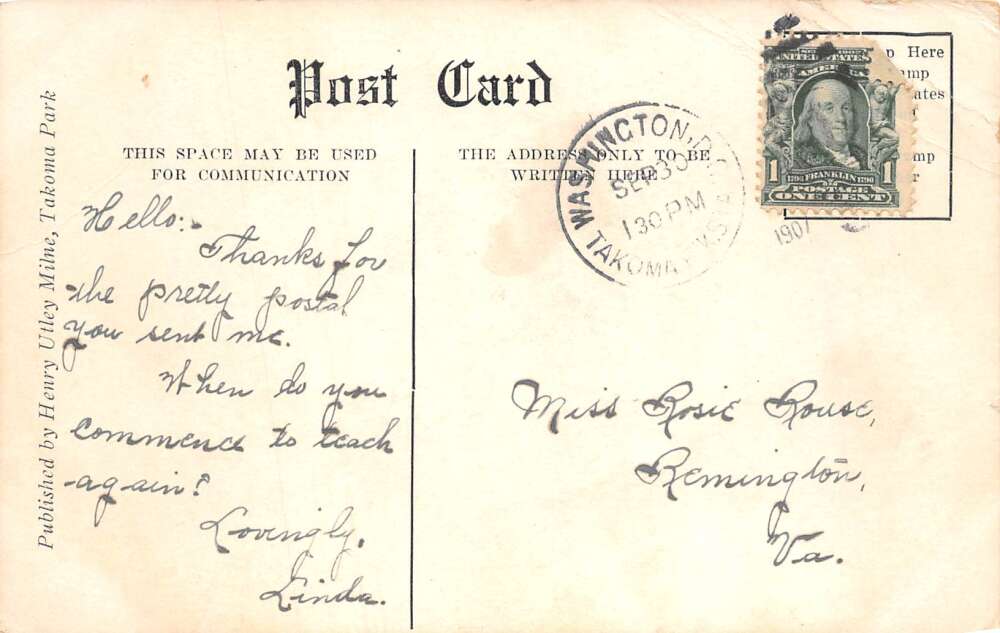 Post Card
THIS SPACE MAY BE USED
FOR COMMUNICATION
THE ADDRESS ONLY TO BE
WRITTEN HERE
Published by Henry Utley Milne, Takoma Park
Hello:
Thanks for
the pretty postal
you sent me.
When do you
commence to teach
again?
Lovingly,
Linda.
WASHINGTON, D.
SEP 30
1 30 PM
1907
TAKOMA
Here
UNITED STATES
AMERICA
1
FRANKLIN
1
POSTAGE
ONE CENT
Miss Rosie Rouse,
Remington,
Va.